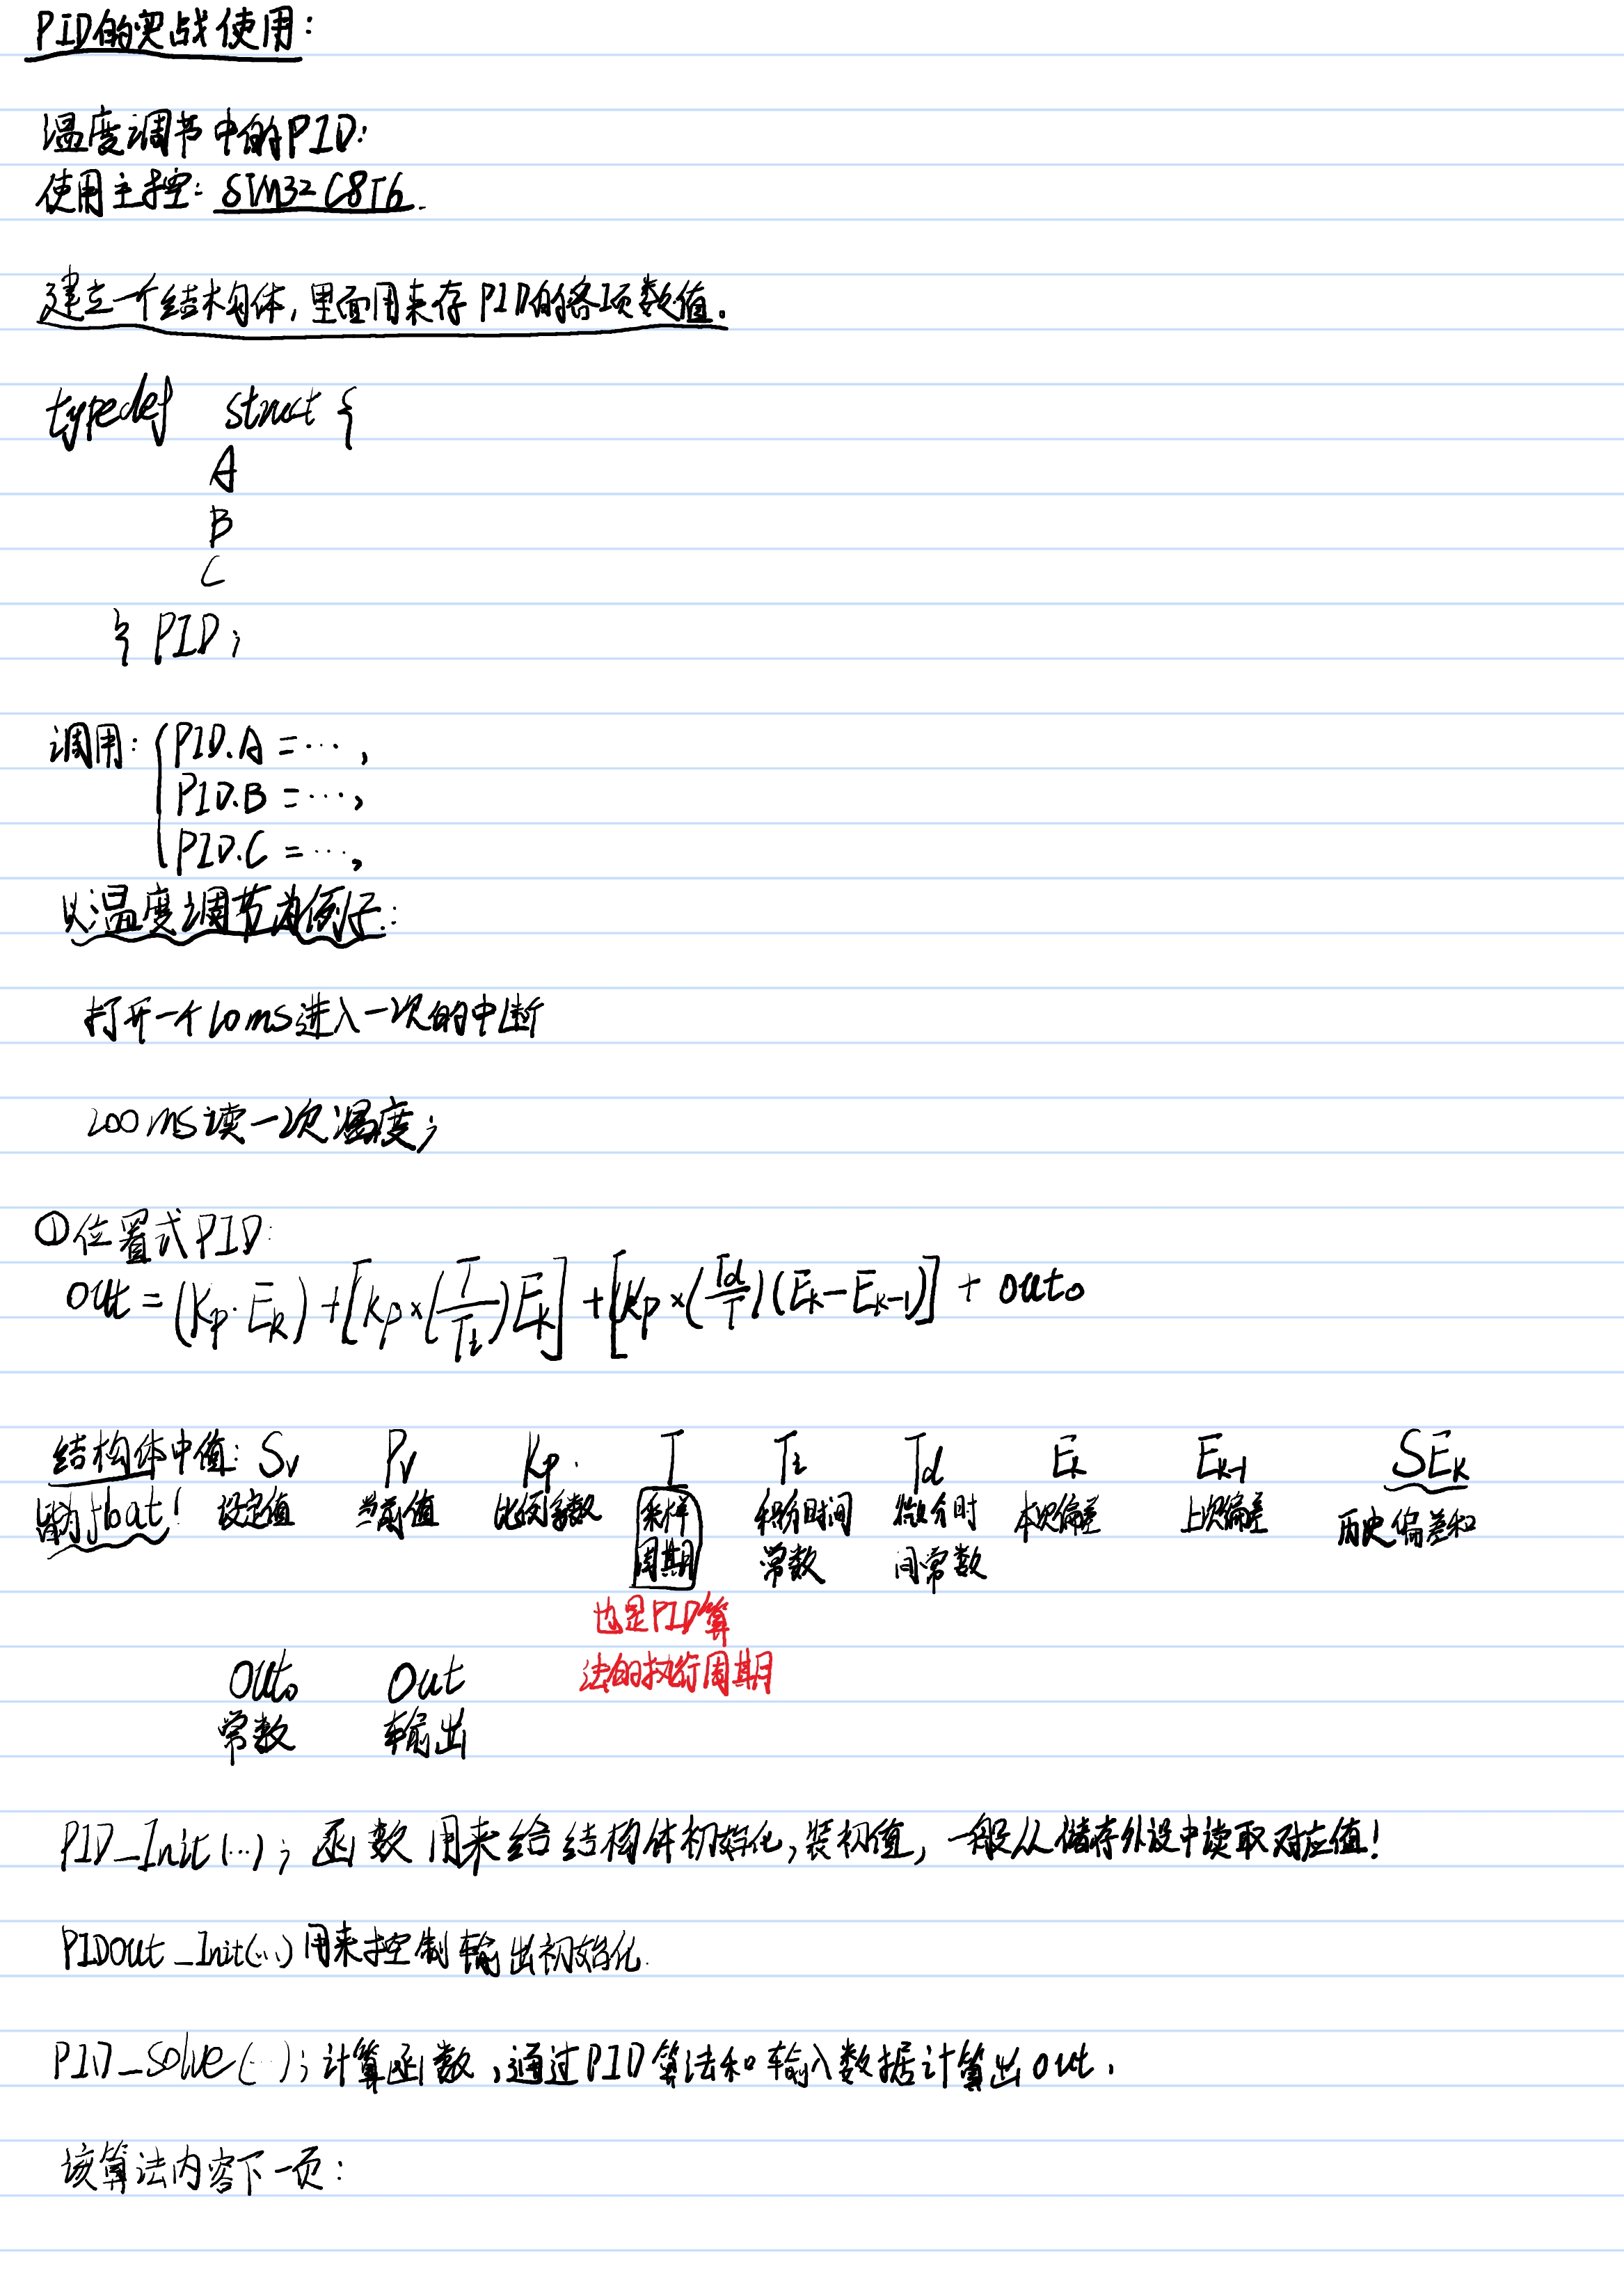 PID的实战使用:
温度调节中的PID:
使用主控: STM32C8T6.
建立一个结构体, 里面用来存PID的各项数值.
typedef struct {
A
B
C
} PID;
调用: { PID.A = ...,
PID.B = ...,
PID.C = ...,
以温度调节为例子:
打开一个10ms进入一次的中断
200ms读一次温度;
①位置式PID:
out = (Kp·Ek) + [Kp×(T/Ti)Ek] + [Kp×(Td/T)(Ek-Ek-1)] + out0
结构体中值: Sv Pv Kp. T Ti Td Ek Ek-1 SEk
皆为float! 设定值 当前值 比例系数 采样周期 积分时间常数 微分时间常数 本次偏差 上次偏差 历史偏差和
也是PID算
法的执行周期
out0 out
常数 输出
PID_Init(...); 函数 用来给结构体初始化, 装初值, 一般从储存外设中读取对应值!
PIDout_Init(...) 用来控制输出初始化.
PID_solve(...); 计算函数, 通过PID算法和输入数据计算出out.
该算法内容下一页: